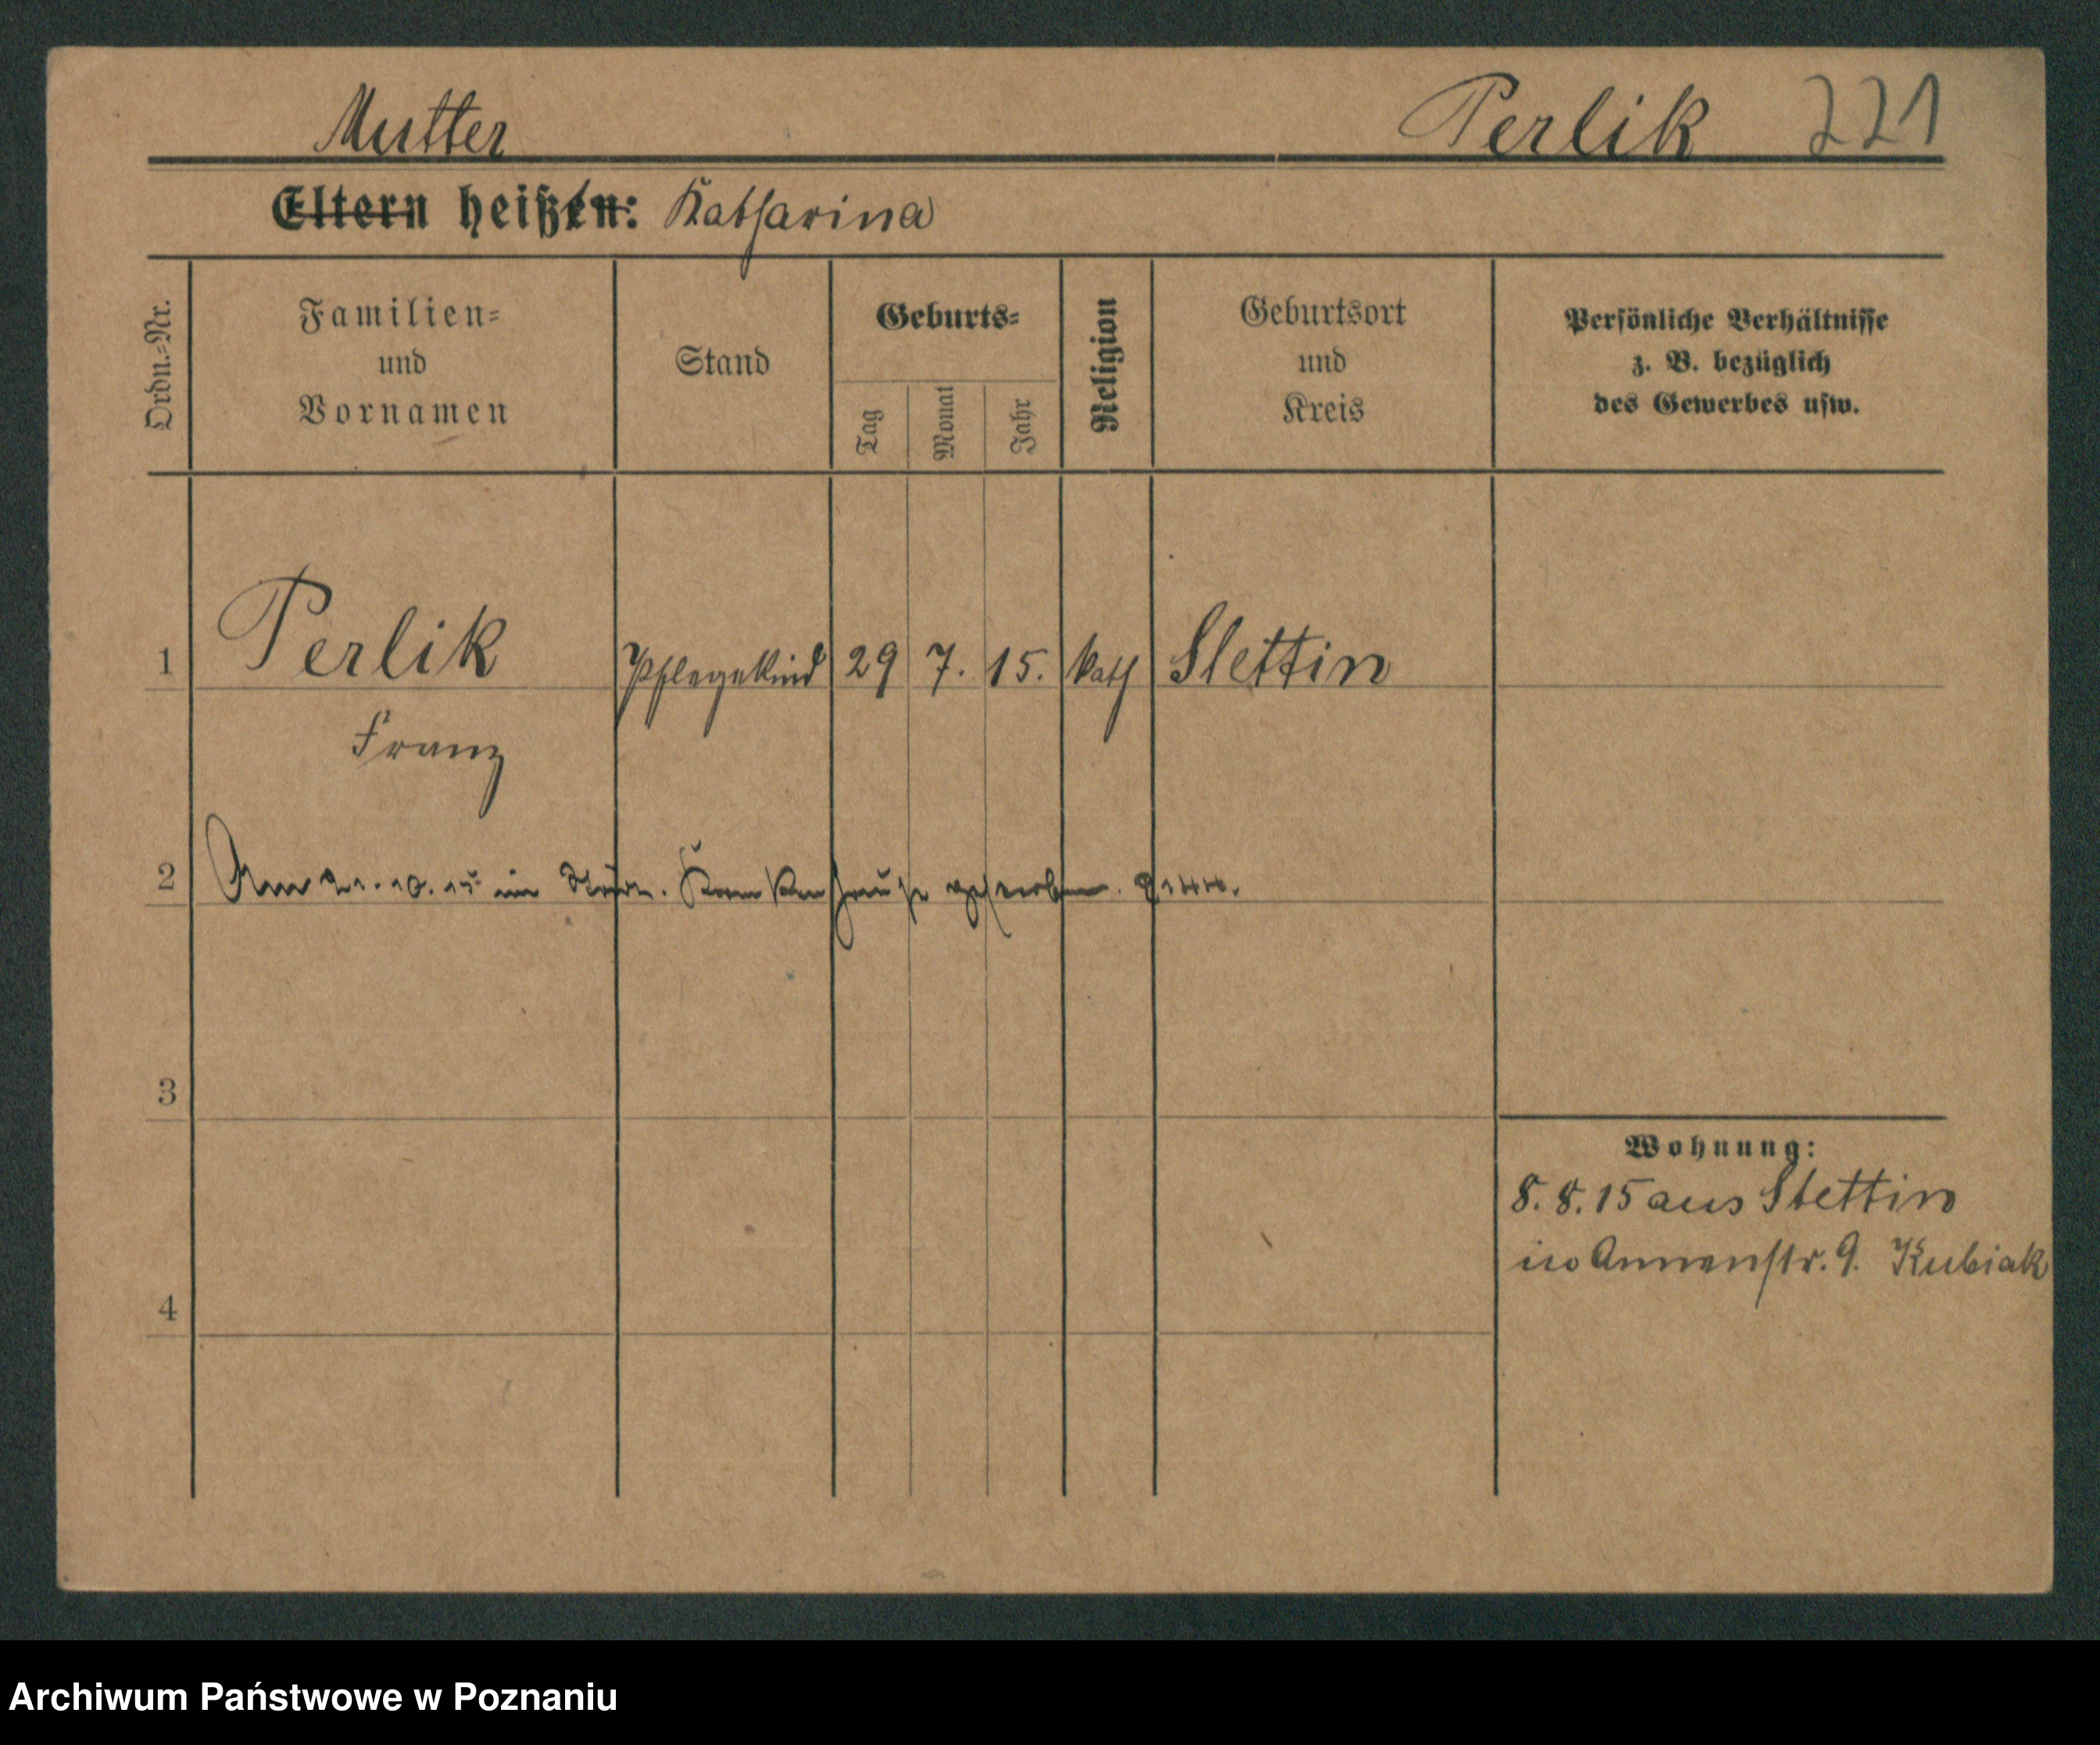 Mutter Perlik 221
Eltern heißen: Katharina
Ordn.-Nr. Familien- und Vornamen Stand Geburts- Tag Monat Jahr Religion Geburtsort und Kreis Persönliche Verhältnisse z. B. bezüglich des Gewerbes usw.
1 Perlik Pflegekind 29 7. 15. kath Stettin
Franz
2 Am 21.10.15 im Städt. Krankenhause gestorben.
3
Wohnung:
8. 8. 15 aus Stettin
in Annenstr. 9. Kubiak
4
Archiwum Państwowe w Poznaniu